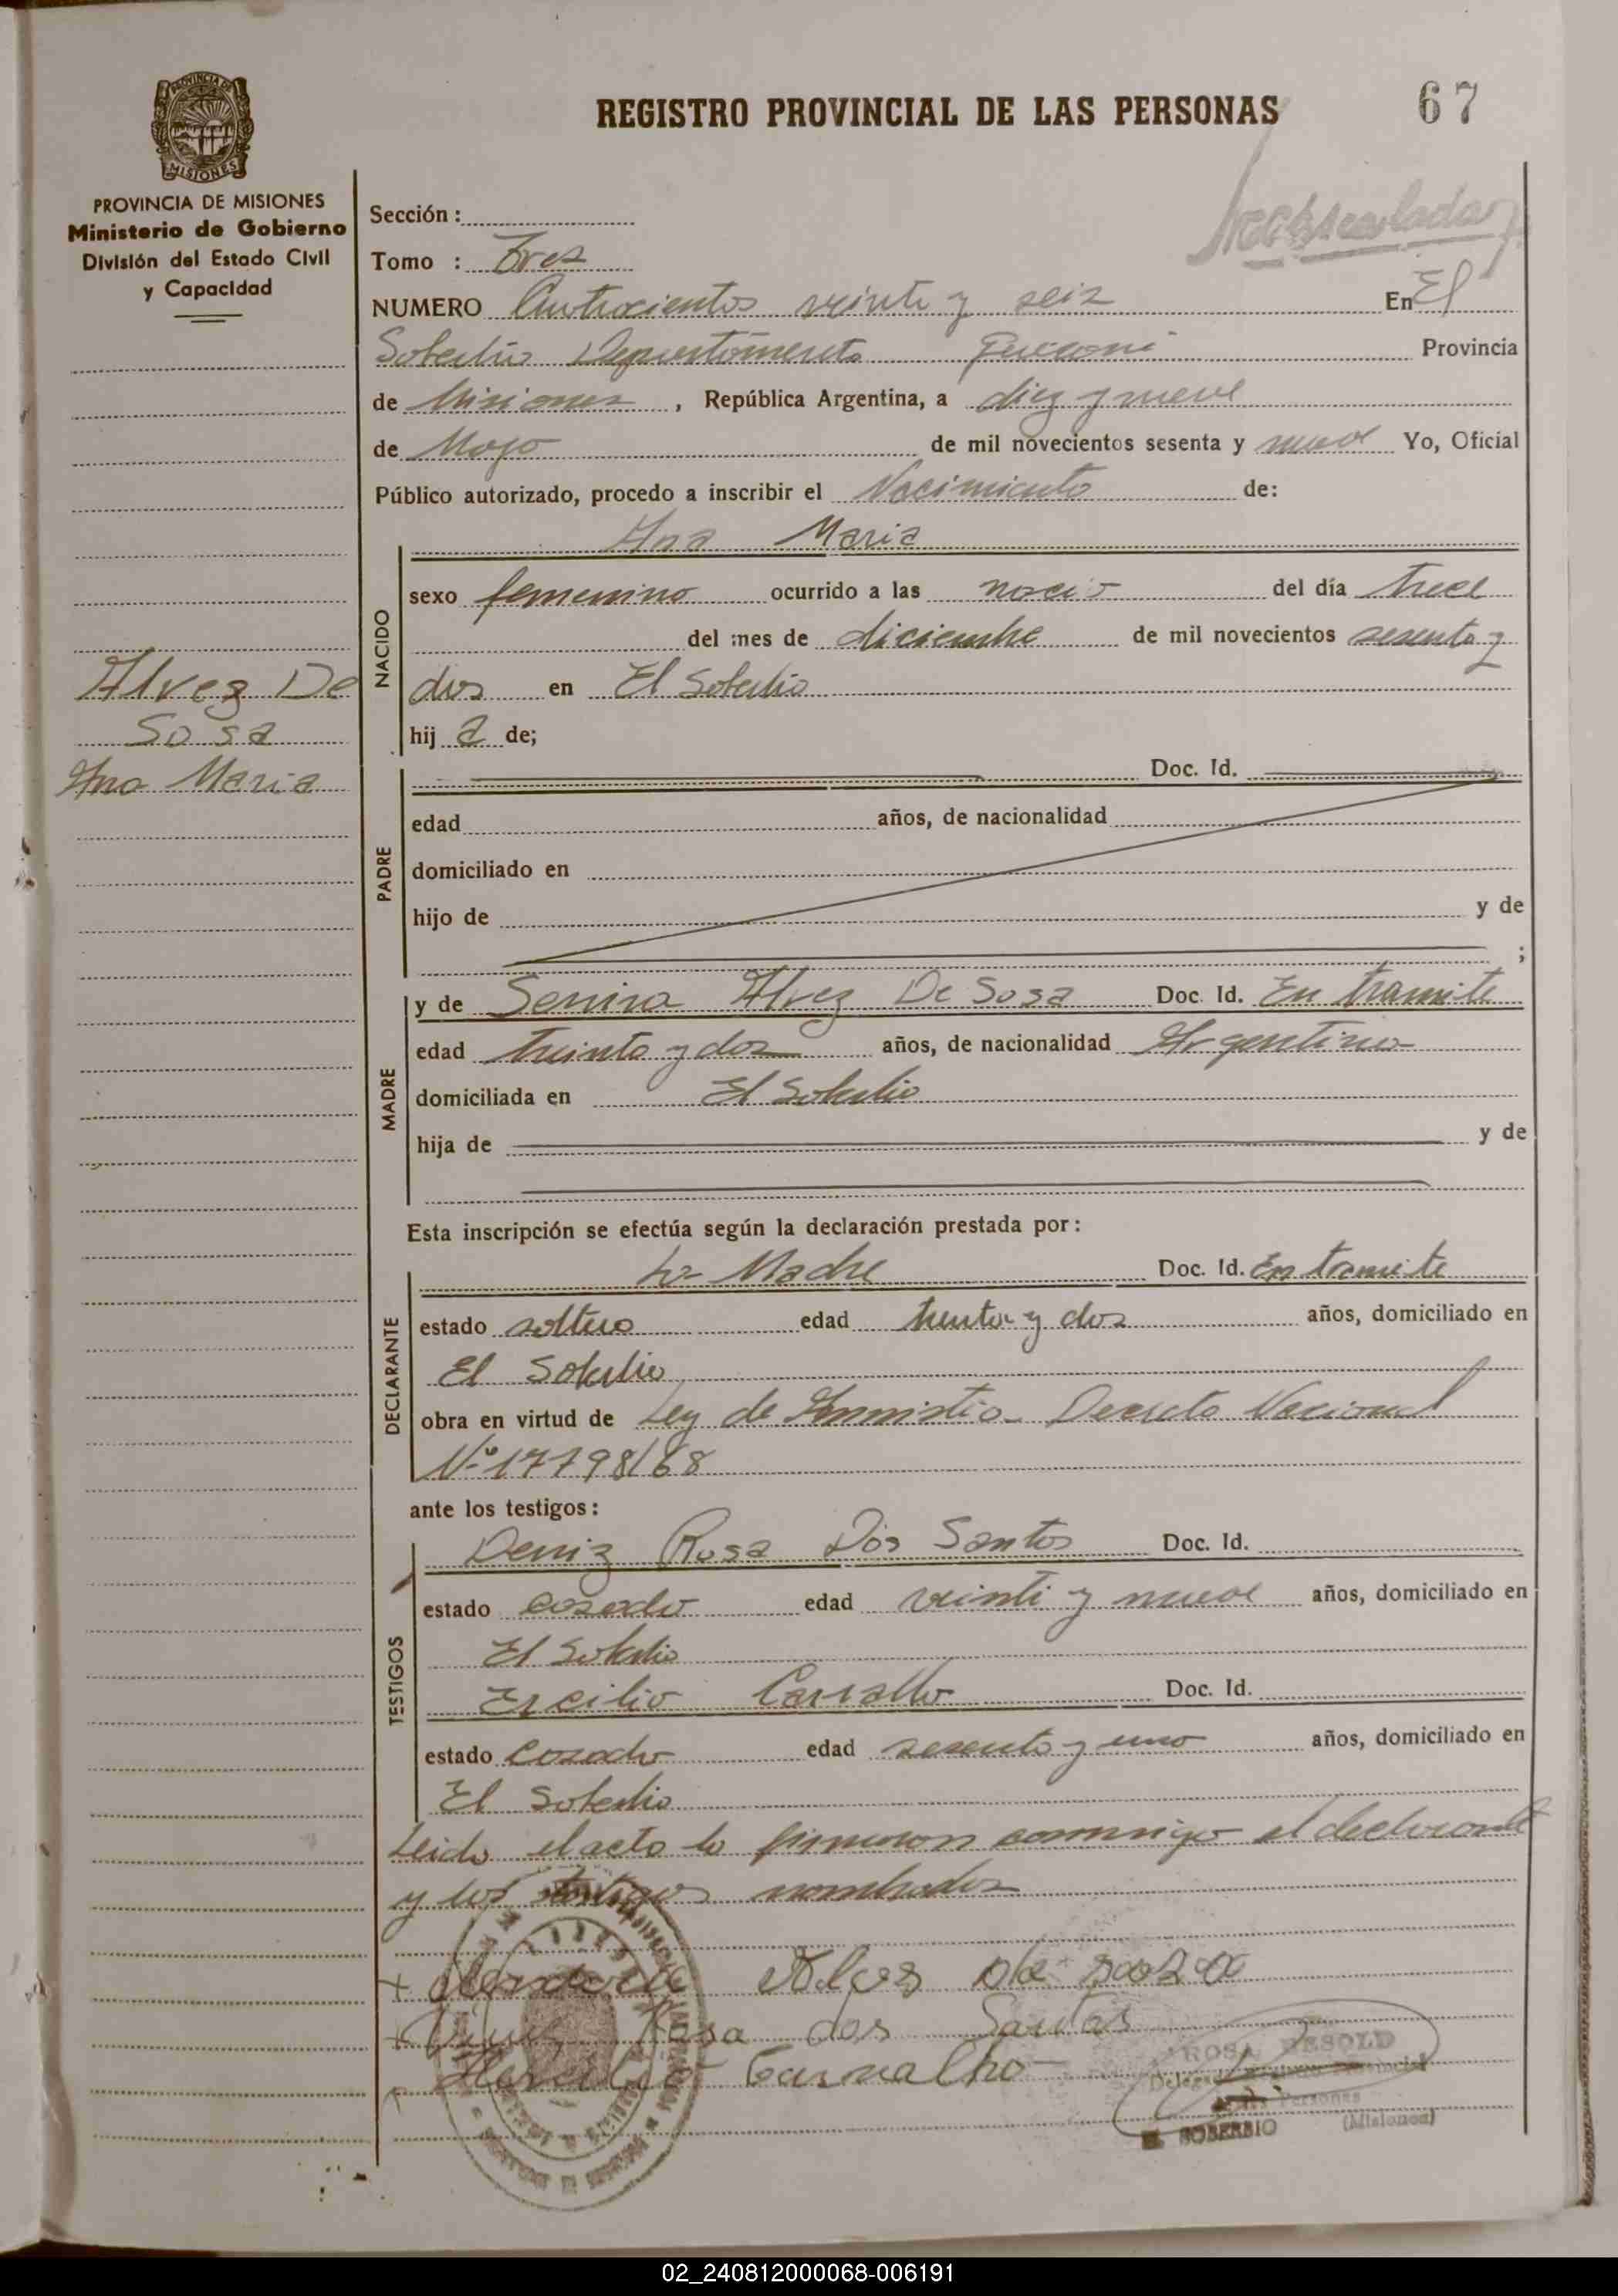 REGISTRO PROVINCIAL DE LAS PERSONAS
67
PROVINCIA DE MISIONES
Ministerio de Gobierno
División del Estado Civil
y Capacidad
Sección :
Tomo : Tres
NUMERO Cuatrocientos veinte y seis En El
Soberbio Departamento Guarani Provincia
de Misiones , República Argentina, a diez y nueve
de Mayo de mil novecientos sesenta y nueve Yo, Oficial
Público autorizado, procedo a inscribir el Nacimiento de:
Ana Maria
NACIDO
sexo femenino ocurrido a las del día trece
del mes de diciembre de mil novecientos sesenta y
dos en El Soberbio
hij a de;
Alvez De
Sosa
Ana Maria
PADRE
Doc. Id.
edad años, de nacionalidad
domiciliado en
hijo de y de
;
MADRE
y de Alvez De Sosa Doc. Id. En tramite
edad treinta y dos años, de nacionalidad Argentina
domiciliada en El Soberbio
hija de y de
Esta inscripción se efectúa según la declaración prestada por :
DECLARANTE
La Madre Doc. Id. En tramite
estado soltera edad treinta y dos años, domiciliado en
El Soberbio
obra en virtud de Ley de Amnistia Decreto Nacional
Nº 17798/68
ante los testigos :
TESTIGOS
Deniz Rosa Dos Santos Doc. Id.
estado casado edad veinti y nueve años, domiciliado en
El Soberbio
Ercilio Carvallo Doc. Id.
estado casado edad sesenta y uno años, domiciliado en
El Soberbio
Leido el acta la firmaron conmigo el declarante
y los testigos nombrados
Alves de souza
Rosa dos Santos
Carvalho
ROSA BESOLD
Personas
EL SOBERBIO (Misiones)
02_240812000068-006191